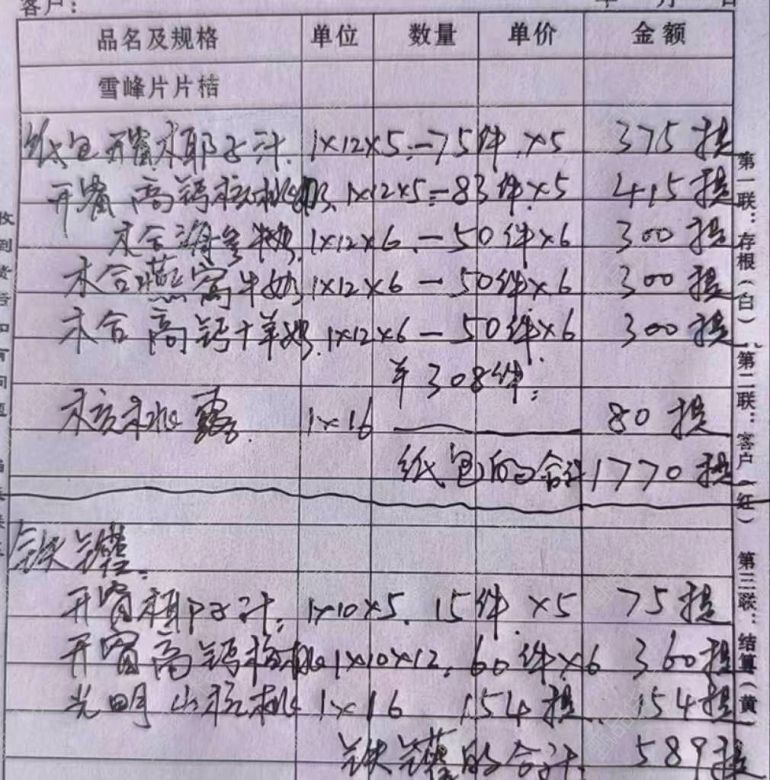 客户:
年 月 日
品名及规格 单位 数量 单价 金额
雪峰片片桔
纸包开窗椰子汁. 1×12×5.—75件.×5 375提
开窗高钙核桃奶. 1×12×5=83件×5 415提
木合海参牛奶 1×12×6.—50件×6 300提
木合燕窝牛奶 1×12×6 — 50件×6 300提
木合高钙羊奶. 1×12×6 — 50件×6 300提
308件.
核桃露. 1×16 80提
纸包的合计 1770提
铁罐.
开窗椰子汁. 1×10×5. 15件 ×5 75提
开窗高钙核桃 1×10×12. 60件×6 360提
光明山核桃 1×16 154提. 154提
铁罐的合计. 589提
第一联:存根(白) 第二联:客户(红) 第三联:结算(黄
收到货后如有问题